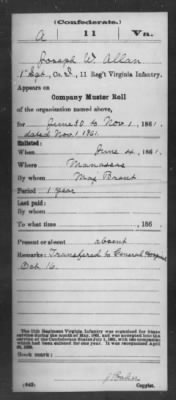 (Confederate.)
A 11 Va.
Joseph W. Allan
1" Sgt., Co. , 11 Reg't Virginia Infantry.
Appears on
Company Muster Roll
of the organization named above,
for June 30 to Nov 1, 1861.
dated Nov. 1 1861.
Enlisted:
When June 4, 1861.
Where Manassas
By whom Maj Brent
Period 1 year
Last paid:
By whom
To what time , 186 .
Present or absent absent
Remarks: Transferred to General Hospital
Oct. 16.
The 11th Regiment Virginia Infantry was organized for State
Book mark:
(642) Copyist.